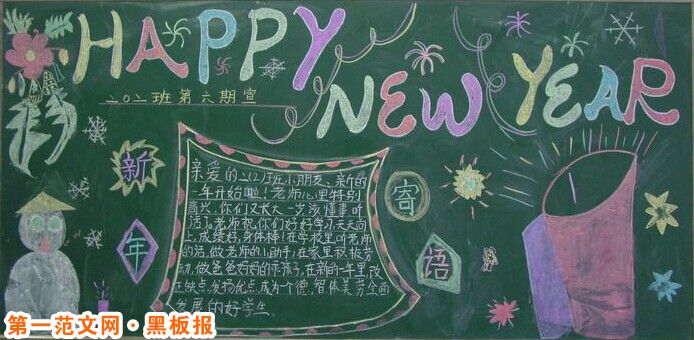 HAPPY NEW YEAR
202班第六期宣
新年
寄语
亲爱的202班小朋友、新的
一年开始啦！老师心里特别
高兴、你们又长大一岁该懂事听
话了。老师祝你们好好学习天天向
上，成绩好，身体棒！在学校里听老师
的话，做老师的小助手；在家里积极劳
动，做爸爸妈妈的乖孩子，在新的一年里，改
正缺点，发扬优点，成为一个德、智体美劳全面
发展的好学生。
第一范文网·黑板报